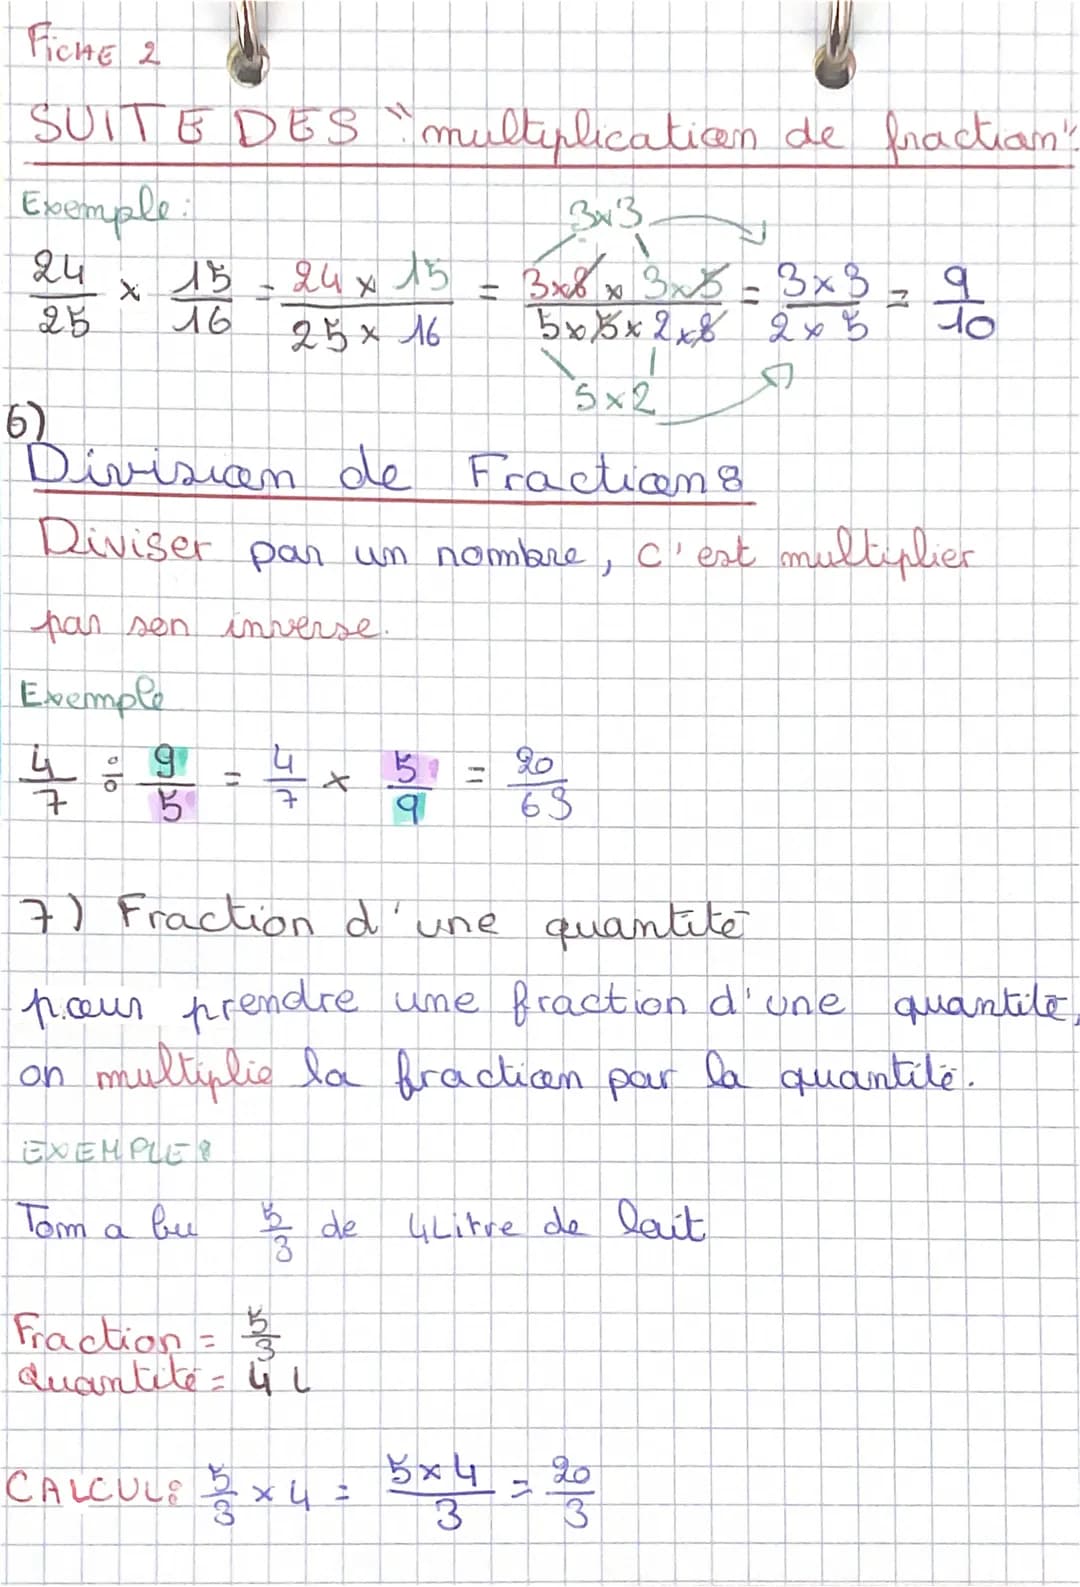 FICHE 2
SUITE DES "multiplication de fraction".
Exemple:
3x3
24/25 x 15/16 = 24 x 15/25 x 16 = 3x8 x 3x5/5x5x2x8 = 3x3/2x5 = 9/10
5x2
6)
Division de Fraction:
Diviser par un nombre, c'est multiplier
par son inverse.
Exemple
4/7 ÷ 9/5 = 4/7 x 5/9 = 20/63
7) Fraction d'une quantité
pour prendre une fraction d'une quantité,
on multiplie la fraction par la quantité.
EXEMPLE:
Tom a bu 5/3 de 4Litre de lait
Fraction = 5/3
Quantité = 4 L
CALCUL: 5/3 x 4 = 5x4/3 = 20/3